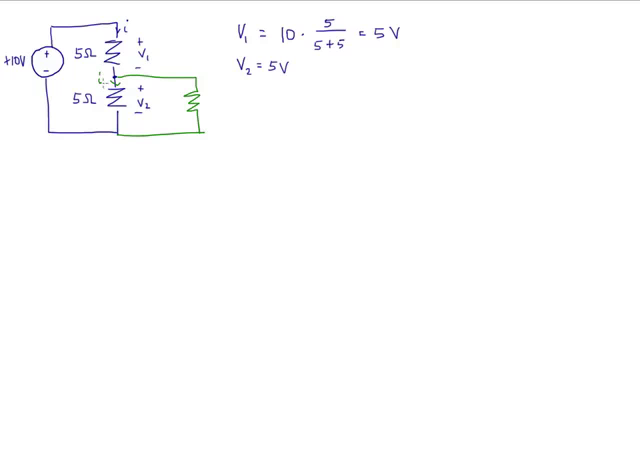 i
+10V
+
-
5Ω
+
V₁
-
i
5Ω
+
V₂
-
V₁ = 10 · 5/(5+5) = 5 V
V₂ = 5V